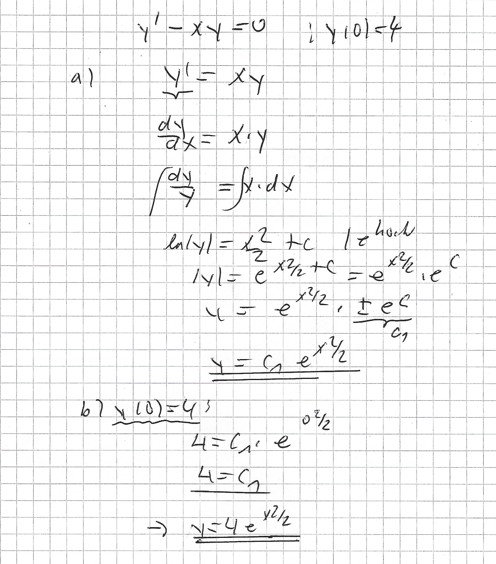 y' - xy = 0 ; y(0)=4
a) y' = xy
dy/dx = x·y
∫ dy/y = ∫x·dx
ln|y| = x²/2 + C | e hoch
|y| = e^(x²/2 + C) = e^(x²/2) · e^C
y = e^(x²/2) · ± e^C
C₁
y = C₁ e^(x²/2)
b) y(0)=4 :
4 = C₁ · e^(0²/2)
4 = C₁
→ y = 4 e^(x²/2)